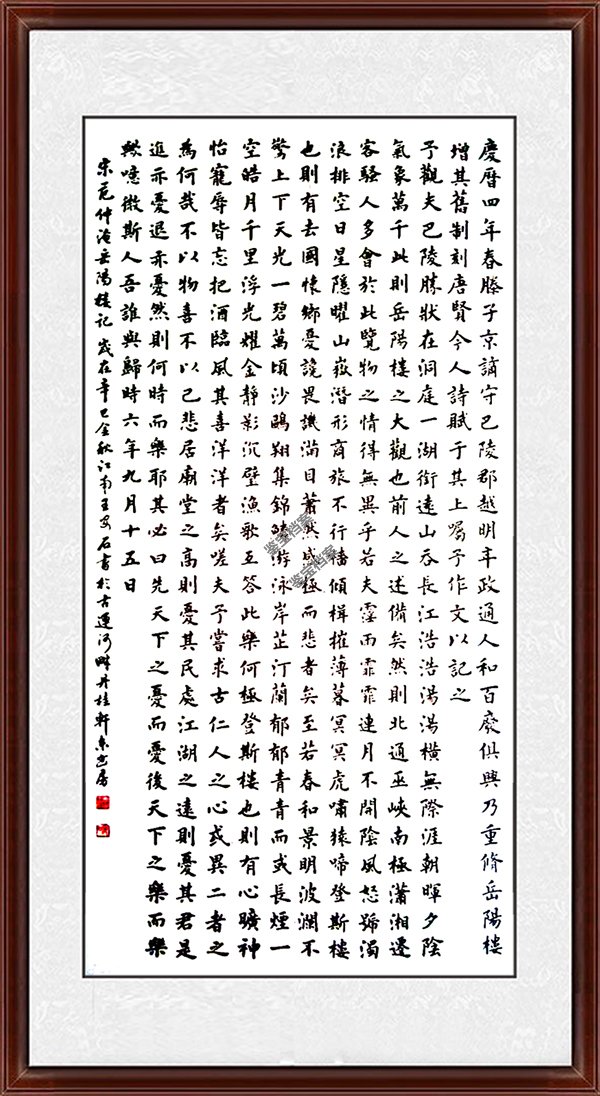 慶曆四年春滕子京謫守巴陵郡越明年政通人和百廢俱興乃重脩岳陽樓
增其舊制刻唐賢今人詩賦于其上屬予作文以記之
予觀夫巴陵勝狀在洞庭一湖銜遠山吞長江浩浩湯湯橫無際涯朝暉夕陰
氣象萬千此則岳陽樓之大觀也前人之述備矣然則北通巫峽南極瀟湘遷
客騷人多會於此覽物之情得無異乎若夫霪雨霏霏連月不開陰風怒號濁
浪排空日星隱曜山嶽潛形商旅不行檣傾楫摧薄暮冥冥虎嘯猿啼登斯樓
也則有去國懷鄉憂讒畏譏滿目蕭然感極而悲者矣至若春和景明波瀾不
驚上下天光一碧萬頃沙鷗翔集錦鱗游泳岸芷汀蘭郁郁青青而或長煙一
空皓月千里浮光耀金靜影沉璧漁歌互答此樂何極登斯樓也則有心曠神
怡寵辱皆忘把酒臨風其喜洋洋者矣嗟夫予嘗求古仁人之心或異二者之
為何哉不以物喜不以己悲居廟堂之高則憂其民處江湖之遠則憂其君是
進亦憂退亦憂然則何時而樂耶其必曰先天下之憂而憂後天下之樂而樂
歟噫微斯人吾誰與歸時六年九月十五日
宋范仲淹岳陽樓記 歲在辛巳金秋江南王安石書於古運河畔丹桂軒東書房
鉴宝档案
鉴宝档案